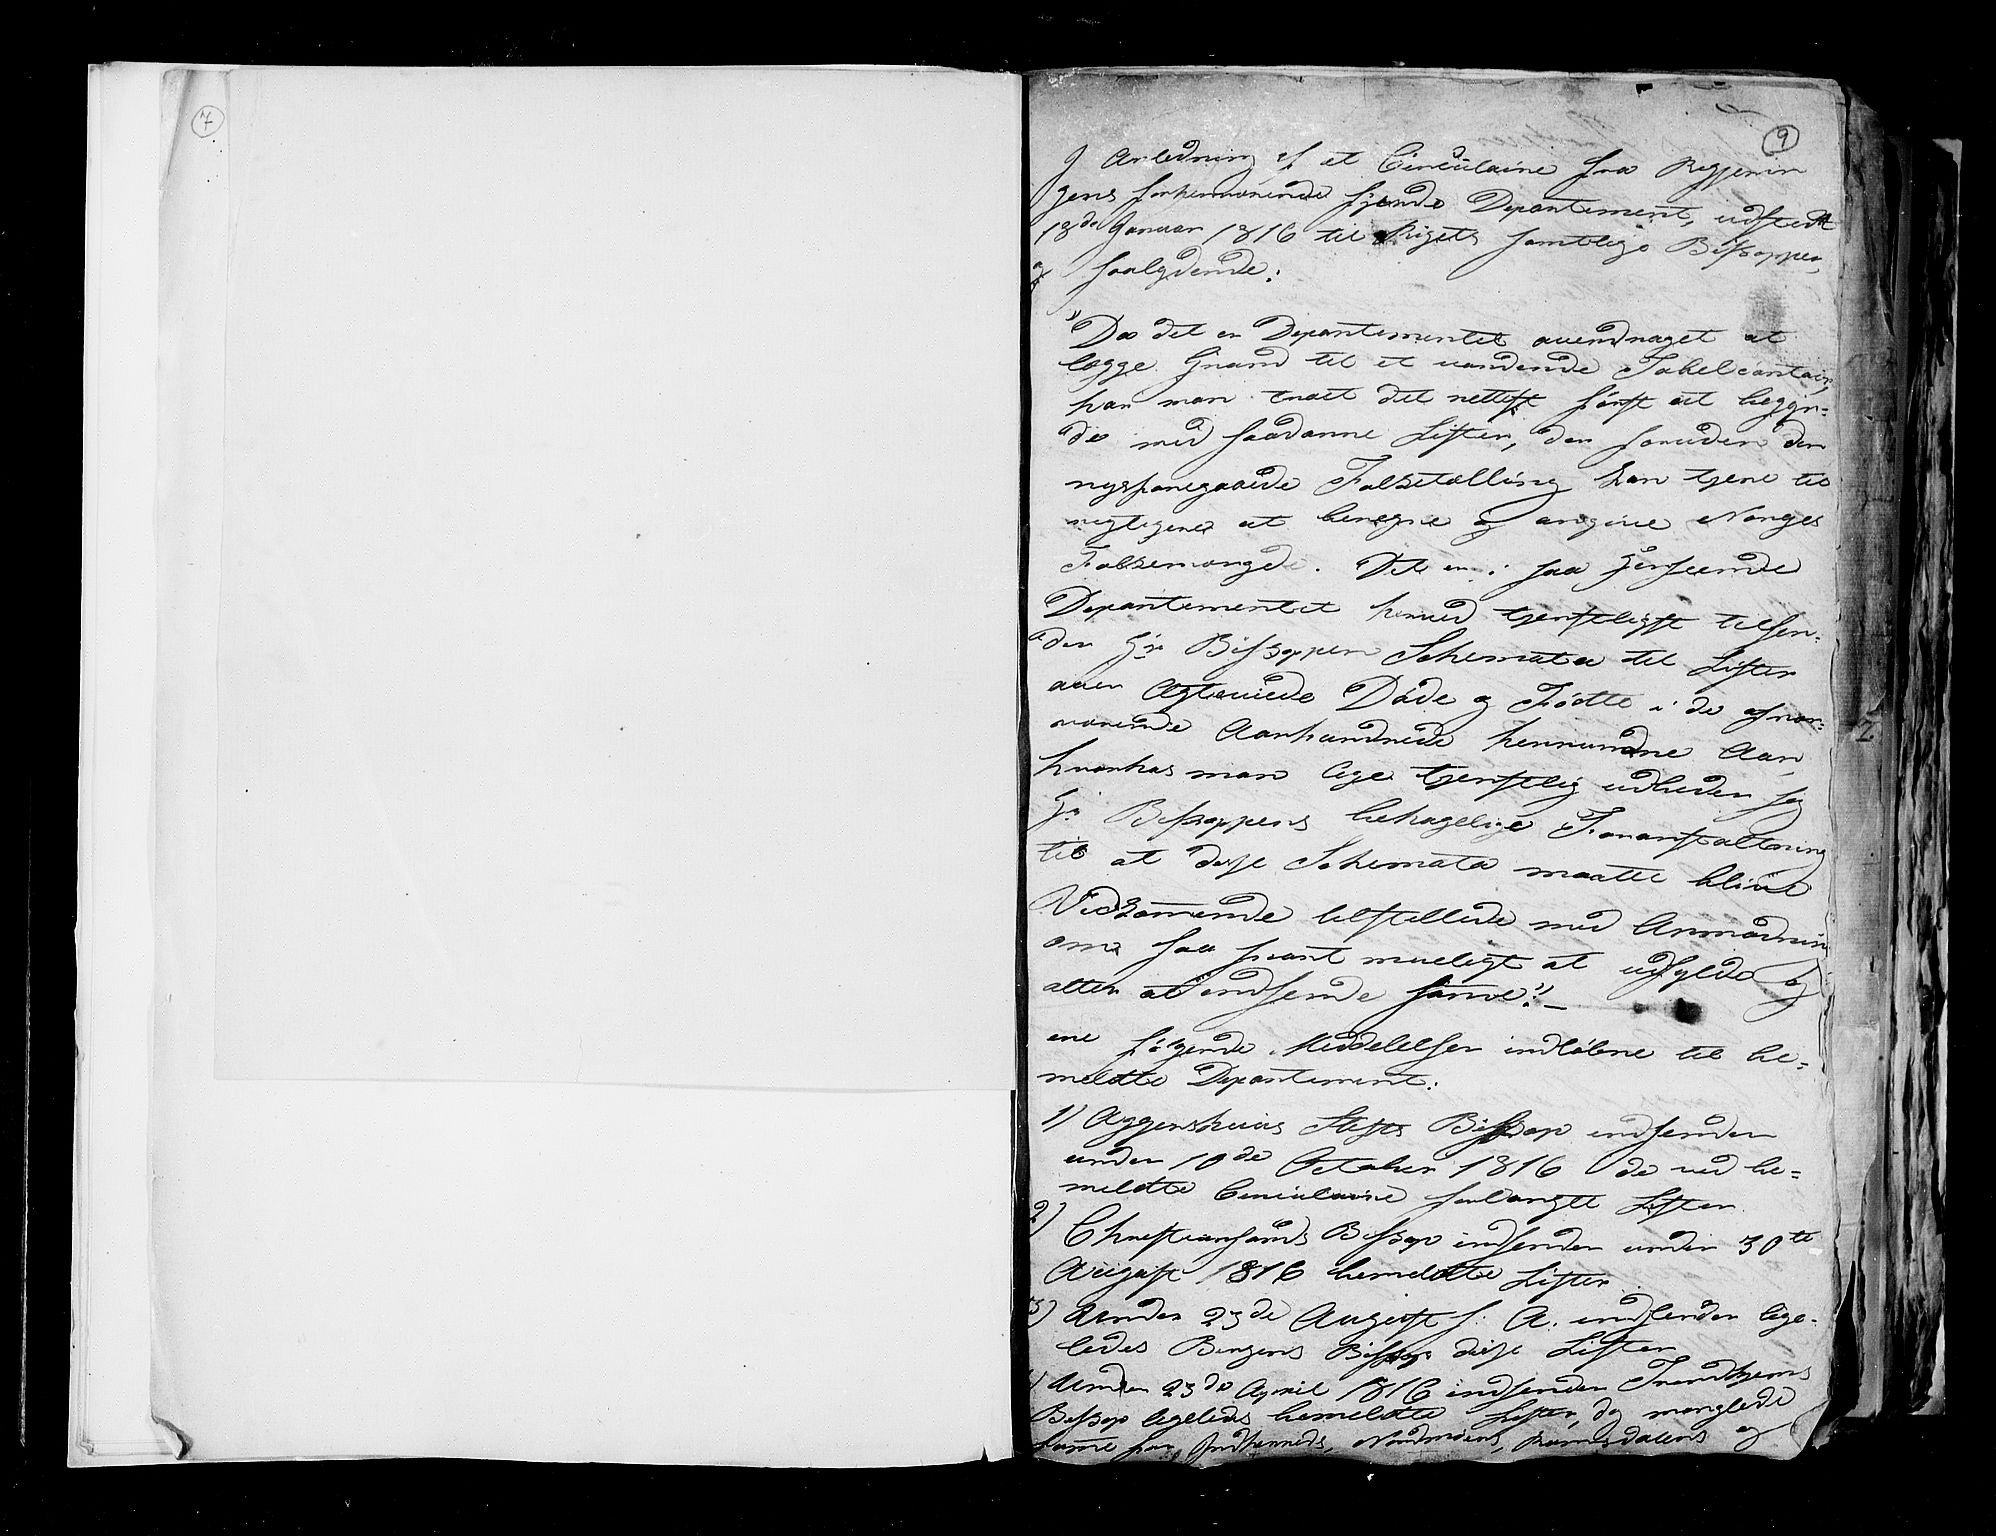 7
9
I Anledning af et Circulaire fra Regjerin
gens forhenværende fjerde Departement, udstedt
13de Januar 1816 til Rigets samtlige Bisper,
saalydende:
"Da det er Departementet overdraget at
lægge Grund til et vordende Tabelcontoir,
har man troet det rettest først at begyn=
de med saadanne Lister, der foruden den
nysforegaaede Folketælling kan tjene til
rigtigere at beregne og angive Norges
Folkemængde. Det er i saa Henseende
Departementet herved tjenstligst tilsen=
der Hr Biskoppen Schemata til Lister
over Ægteviede Døde og Fødte i de af nær=
værende Aarhundrede henrundne Aar,
hvorhos man lige tjenstlig udbeder sig
Hr Biskoppens behagelige Foranstaltning
til at disse Schemata maatte blive
Vedkommende tilstillede med Anmodning
om saa snart mueligt at udfylde og
atter at indsende samme." —
ere følgende Meddelelser indløbne til be=
meldte Departement:
1) Aggershuus Stifts Biskop indsender
under 10de October 1816 de ved be=
meldte Circulaire forlangte Lister
2) Christiansands Biskop indsender under 30te
August 1816 bemeldte Lister
3) Under 23de August s. A. indsender lige=
ledes Bergens Biskop disse Lister
4) Under 23de April 1816 indsender Trondhjems
Biskop ligeledes bemeldte Lister, dog manglede
samme for Indherreds, Nordmørs, Romsdalens og